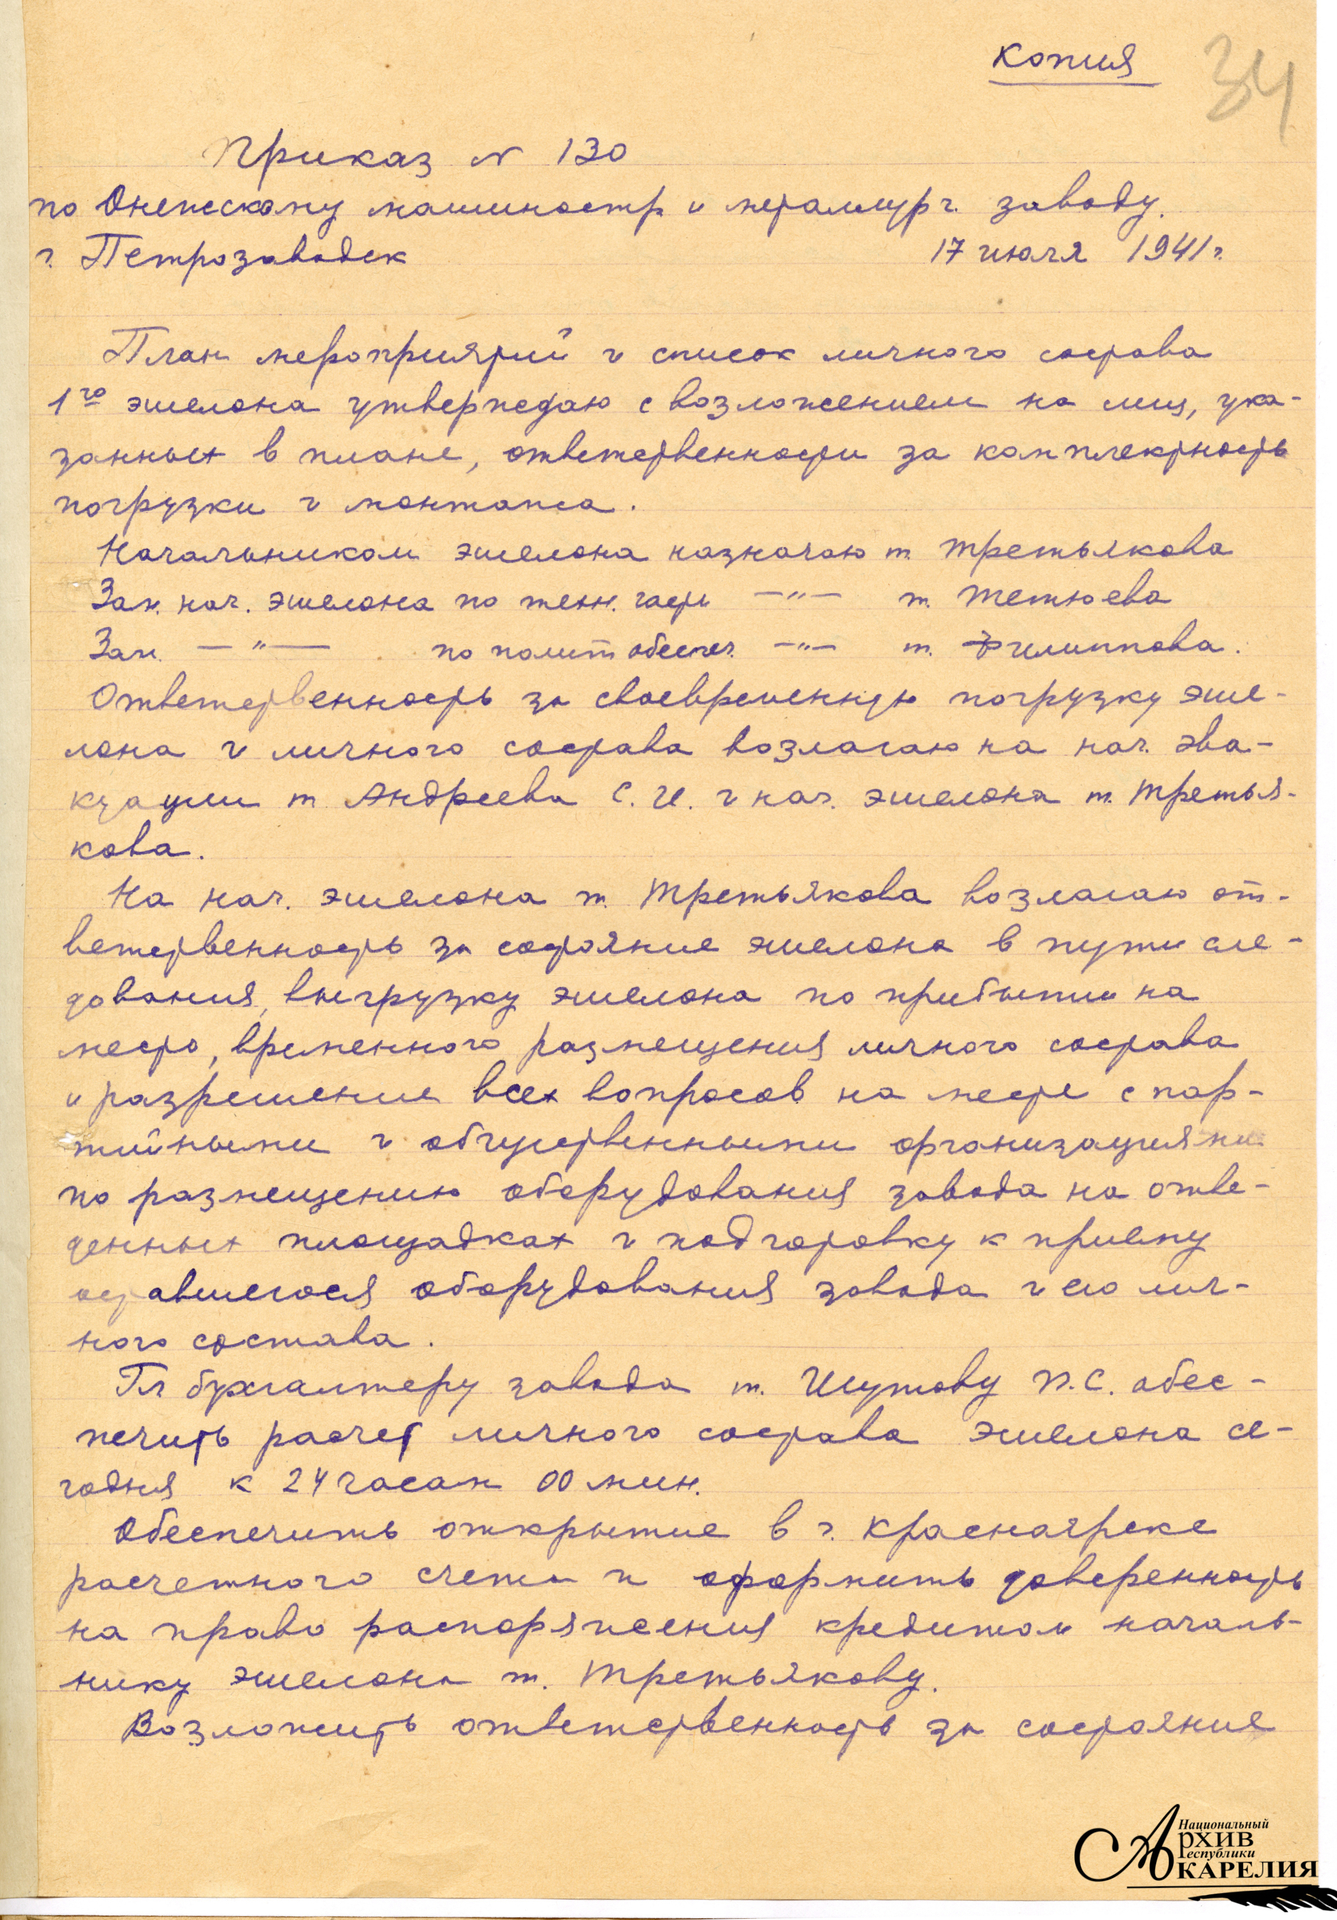 Копия
34
Приказ № 130
по Онежскому машиностр и металлург. заводу.
г. Петрозаводск 17 июля 1941 г.
План мероприятий и список личного состава
1го эшелона утверждаю с возложением на лиц, ука-
занных в плане, ответственности за комплектность
погрузки и монтажа.
Начальником эшелона назначаю т. Третьякова
Зам. нач. эшелона по техн. части —"— т. Тетюева
Зам. —"— по полит обеспеч. —"— т. Филиппова.
Ответственность за своевременную погрузку эше-
лона и личного состава возлагаю на нач. эва-
куации т. Андреева С. И. и нач. эшелона т. Третья-
кова.
На нач. эшелона т. Третьякова возлагаю от-
ветственность за состояние эшелона в пути сле-
дования, выгрузку эшелона по прибытии на
место, временного размещения личного состава
и разрешение всех вопросов на месте с пар-
тийными и общественными организациями
по размещению оборудования завода на отве-
денных площадках и подготовку к приему
оставшегося оборудования завода и его лич-
ного состава.
Гл бухгалтеру завода т. Шутову П. С. обес-
печить расчет личного состава эшелона се-
годня к 24 часам 00 мин.
Обеспечить открытие в г. Красноярске
расчетного счета и оформить доверенность
на право распоряжения кредитом началь-
нику эшелона т. Третьякову.
Возложить ответственность за состояние
Национальный
Архив
Республики
КАРЕЛИЯ